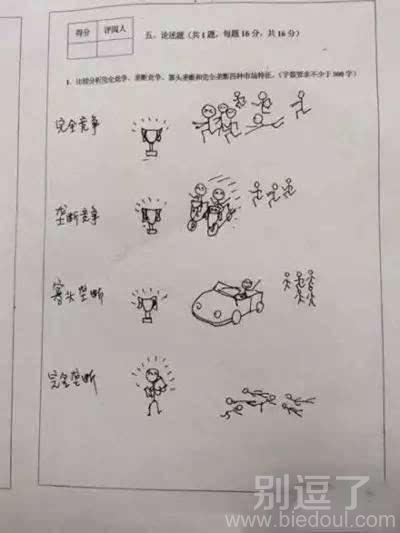 得分 评阅人
五、论述题（共1题，每题16分，共16分）
1. 比较分析完全竞争、垄断竞争、寡头垄断和完全垄断四种市场特征。（字数要求不少于300字）
完全竞争
垄断竞争
寡头垄断
完全垄断
别逗了
www.biedoul.com